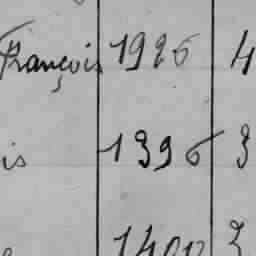 François 1926 4
is 1396 3
1400 3